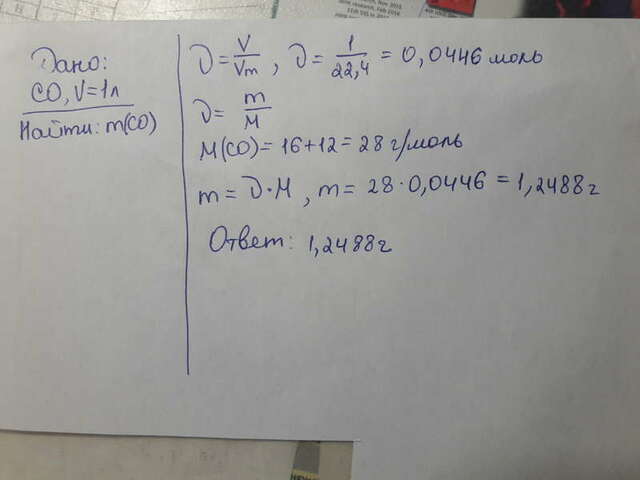 Дано:
CO, V=1л
Найти: m(CO)
ν = V/Vm, ν = 1/22,4 = 0,0446 моль
ν = m/M
M(CO) = 16+12 = 28 г/моль
m = ν·M, m = 28·0,0446 = 1,2488г
Ответ: 1,2488г